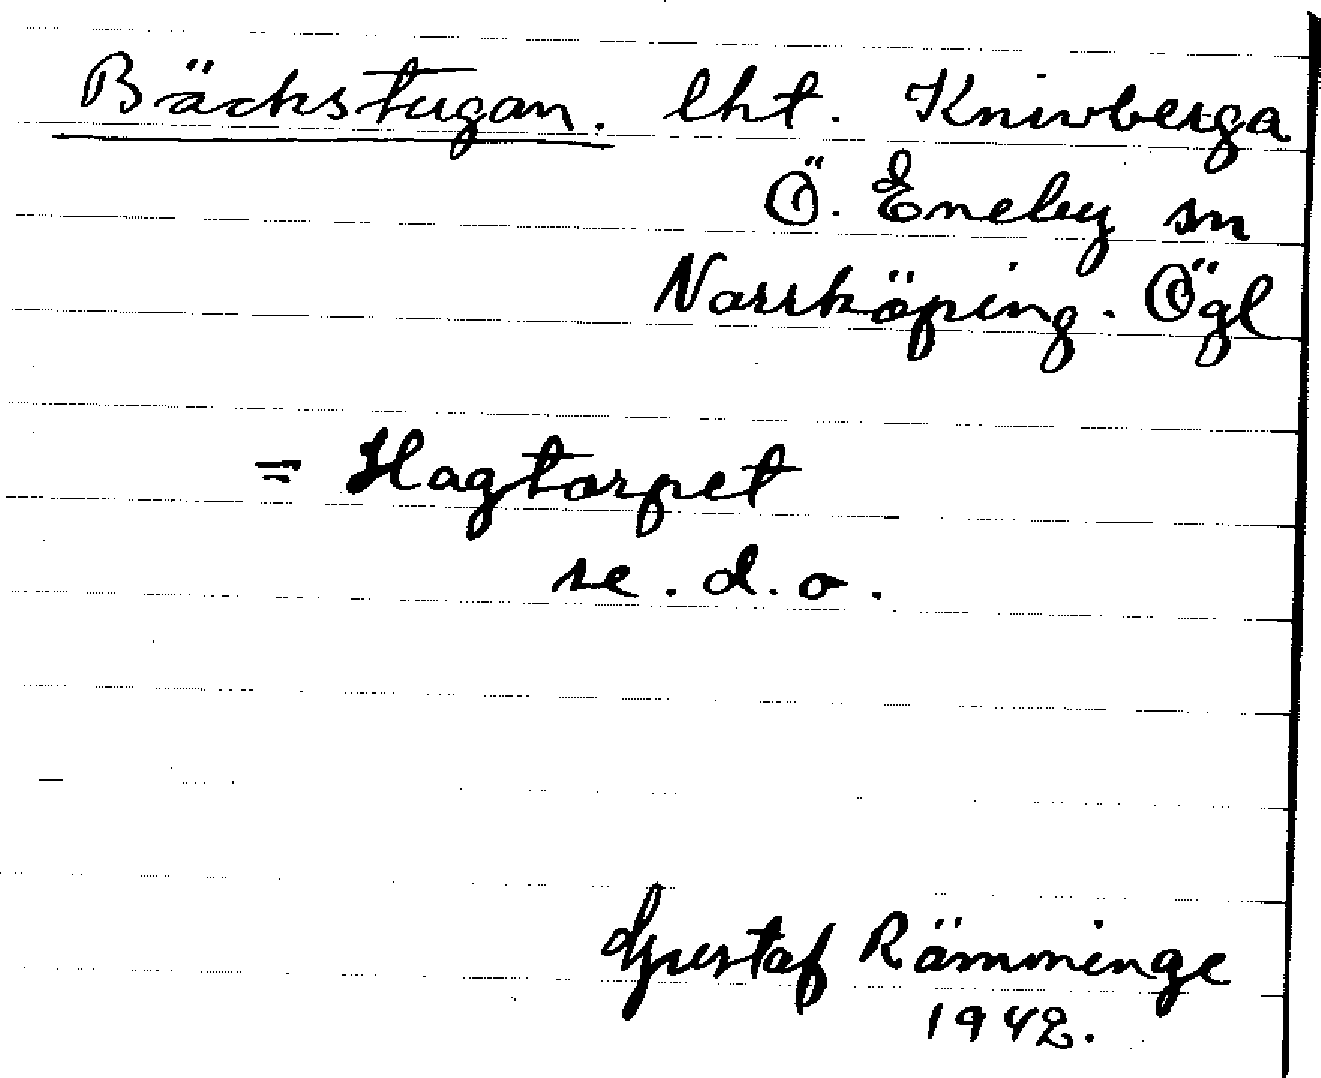 Bäckstugan. lht. Knivberga
Ö. Eneby sn
Norrköping. Ögl
= Hagtorpet
se. d.o.
Gustaf Rämminge
1942.